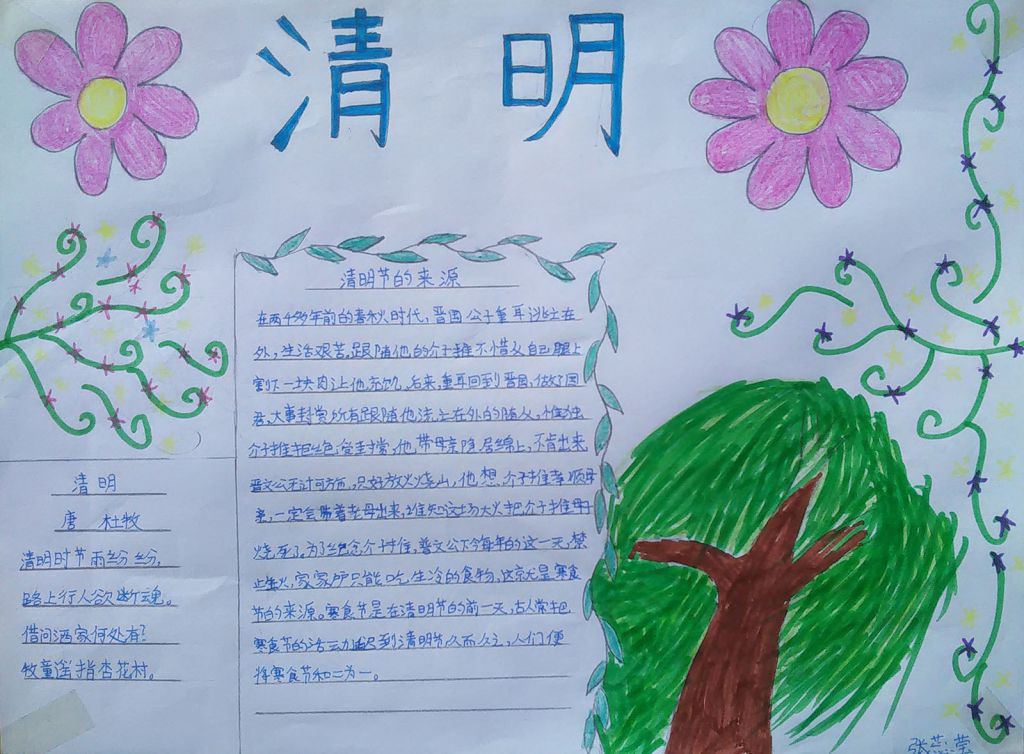 清明
清明节的来源
在两千多年前的春秋时代，晋国公子重耳逃亡在
外，生活艰苦，跟随他的介子推不惜从自己腿上
割下一块肉让他充饥。后来，重耳回到晋国，做了国
君，大事封赏所有跟随他流亡在外的随从，惟独
介子推拒绝受封赏，他带母亲隐居绵上，不肯出来，
晋文公无计可施，只好放火烧山，他想，介子推孝顺母
亲，一定会带着老母出来，谁知这场大火把介子推母子
烧死了。为了纪念介子推，晋文公下令每年的这一天，禁
止生火，家家户户只能吃生冷的食物，这就是寒食
节的来源。寒食节是在清明节的前一天，古人常把
寒食节的活动延迟到清明节久而久之，人们便
将寒食节和二为一。
清明
唐 杜牧
清明时节雨纷纷，
路上行人欲断魂。
借问酒家何处有？
牧童遥指杏花村。